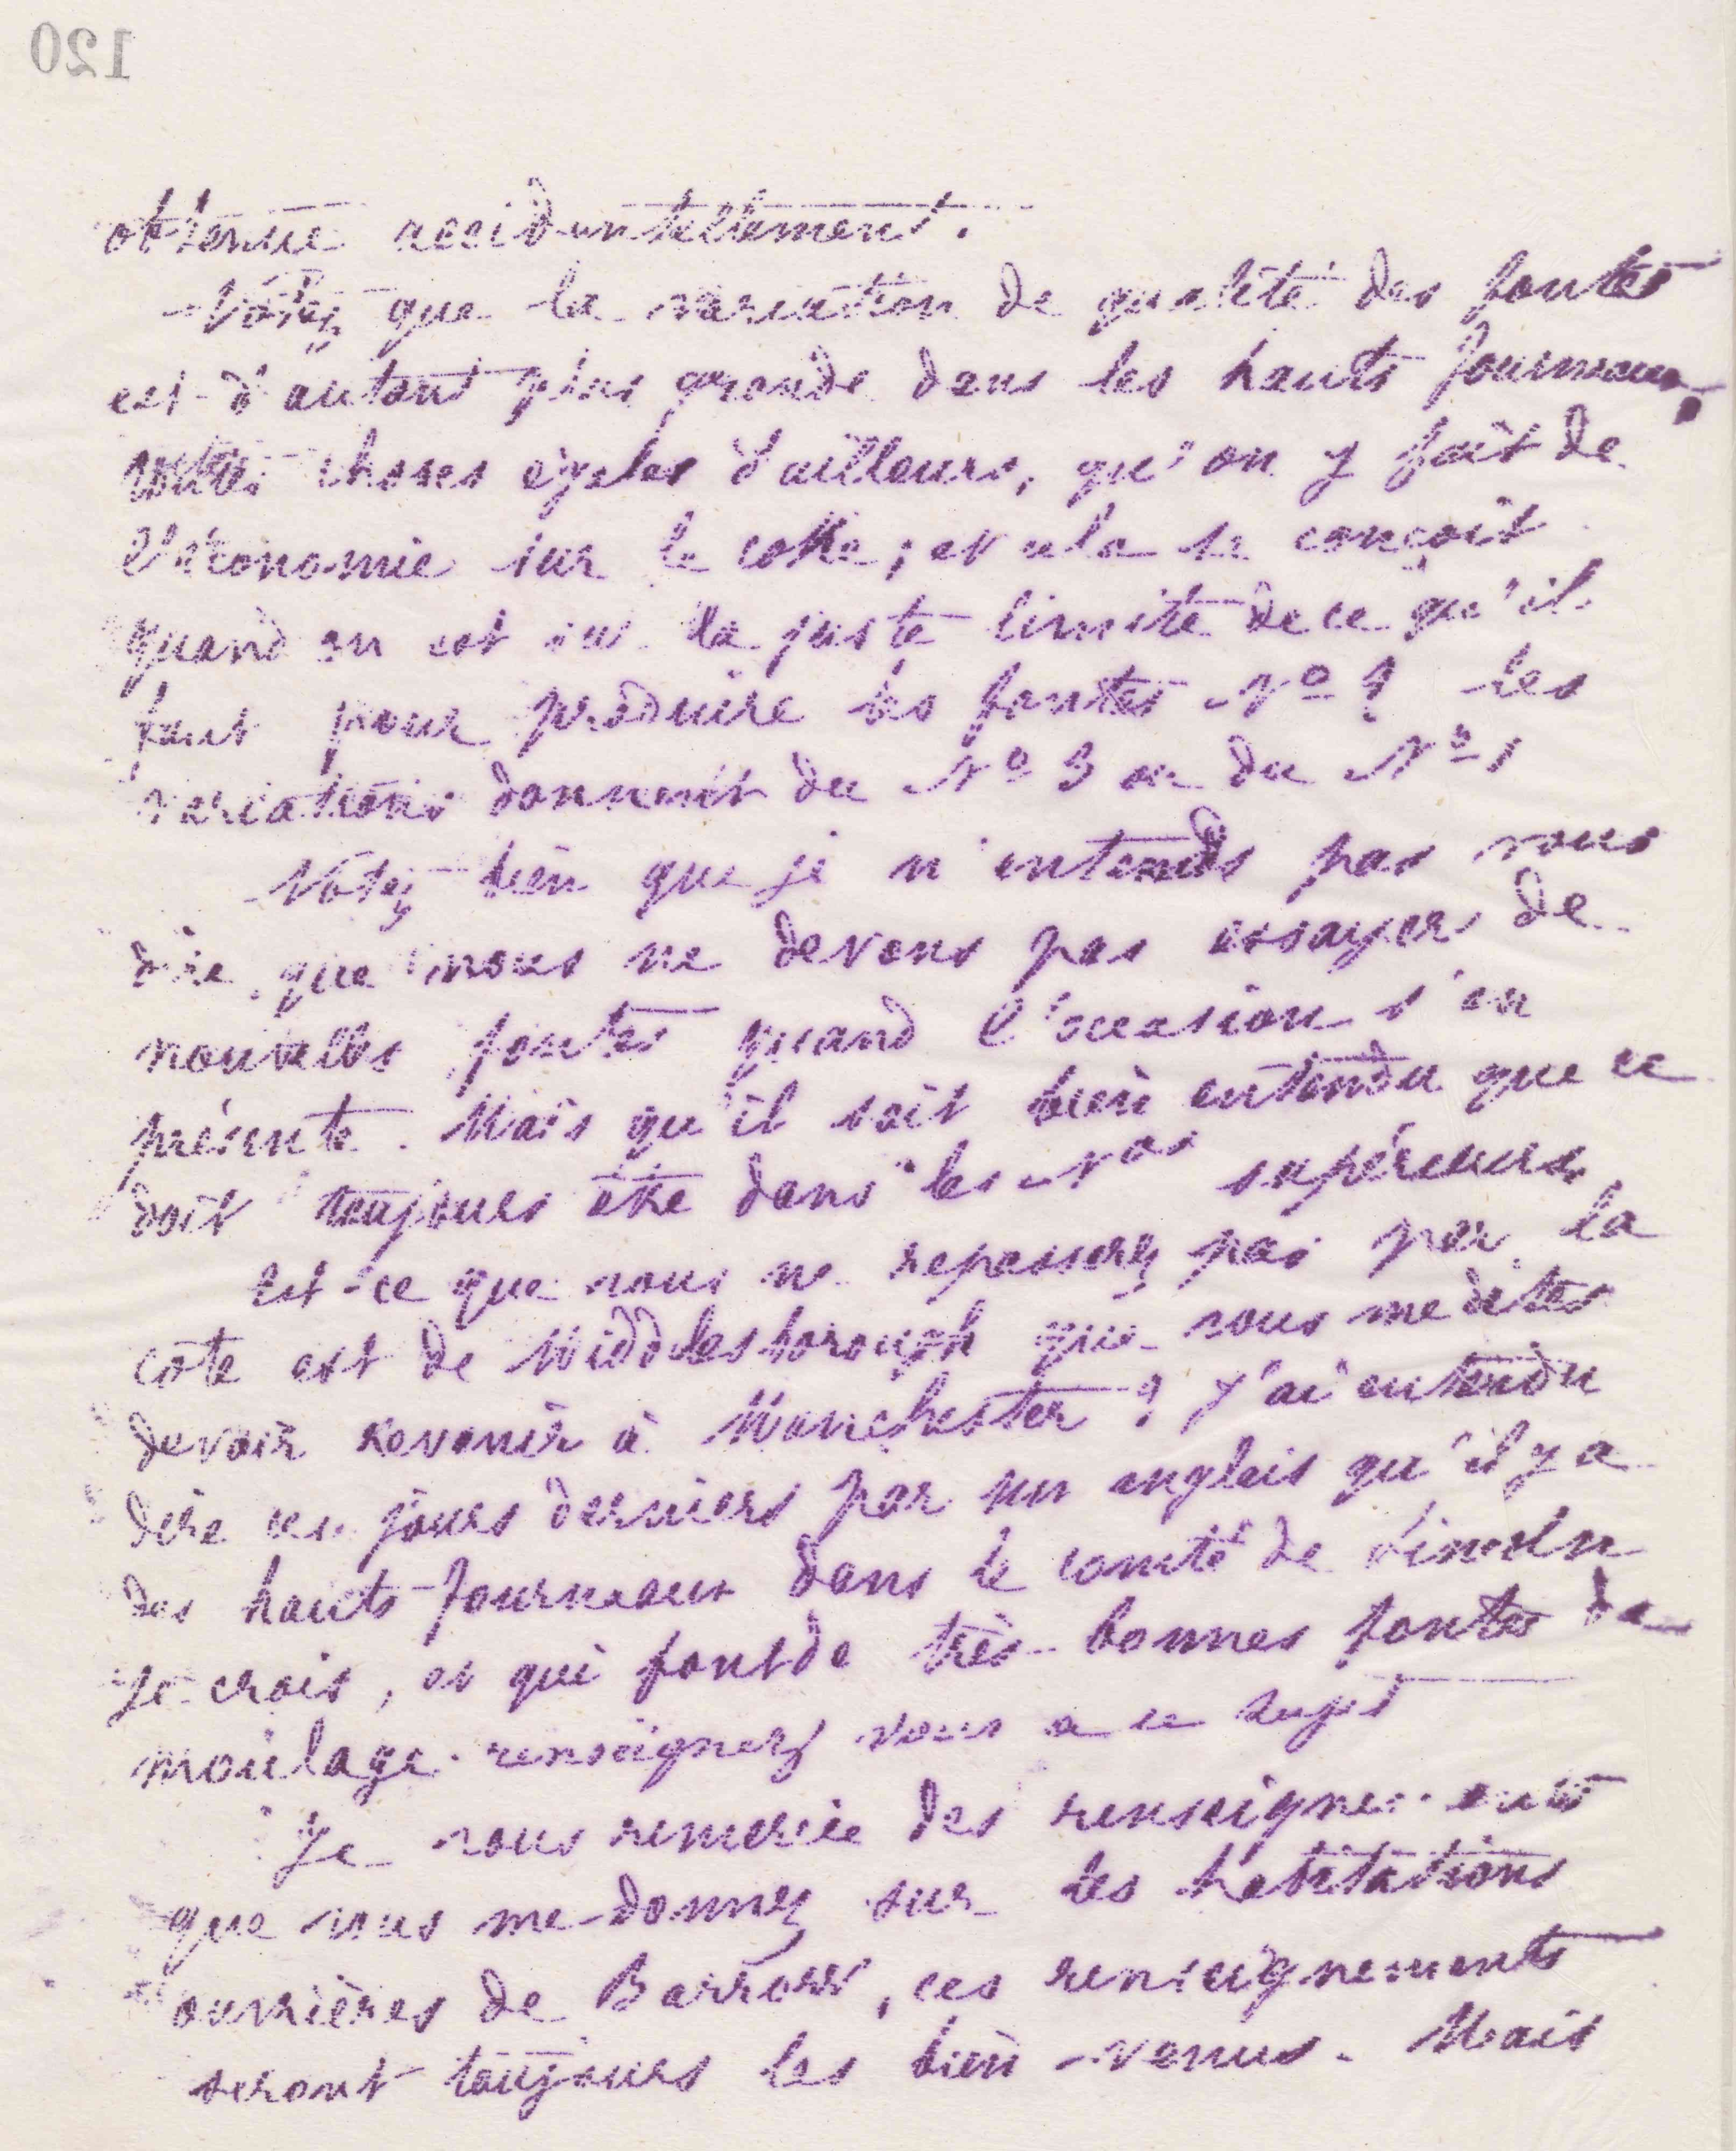 120
obtenue accidentellement.
Notez que la variation de qualité des fontes
est d'autant plus grande dans les hauts fourneaux,
toutes choses égales d'ailleurs, qu'on y fait de
l'économie sur le coke; et cela se conçoit
quand on est sur la juste limite de ce qu'il
faut pour produire les fontes Nº 2 les
variations donnent du Nº 3 ou du Nº 1
Notez bien que je n'entends pas vous
dire que nous ne devons pas essayer de
nouvelles fontes quand l'occasion s'en
présente. Mais qu'il soit bien entendu que ce
doit toujours être dans les Nos supérieurs.
Est-ce que vous ne repasserez pas par la
côte est de Middlesborough que vous me dites
devoir revenir à Manchester? J'ai entendu
dire ces jours derniers par un anglais qu'il y a
des hauts-fourneaux dans le comté de Lincoln
je crois, et qui font de très bonnes fontes de
moulage. renseignez vous à ce sujet
Je vous remercie des renseignements
que vous me donnez sur les habitations
ouvrières de Barrow, ces renseignements
seront toujours les bien-venus. Mais